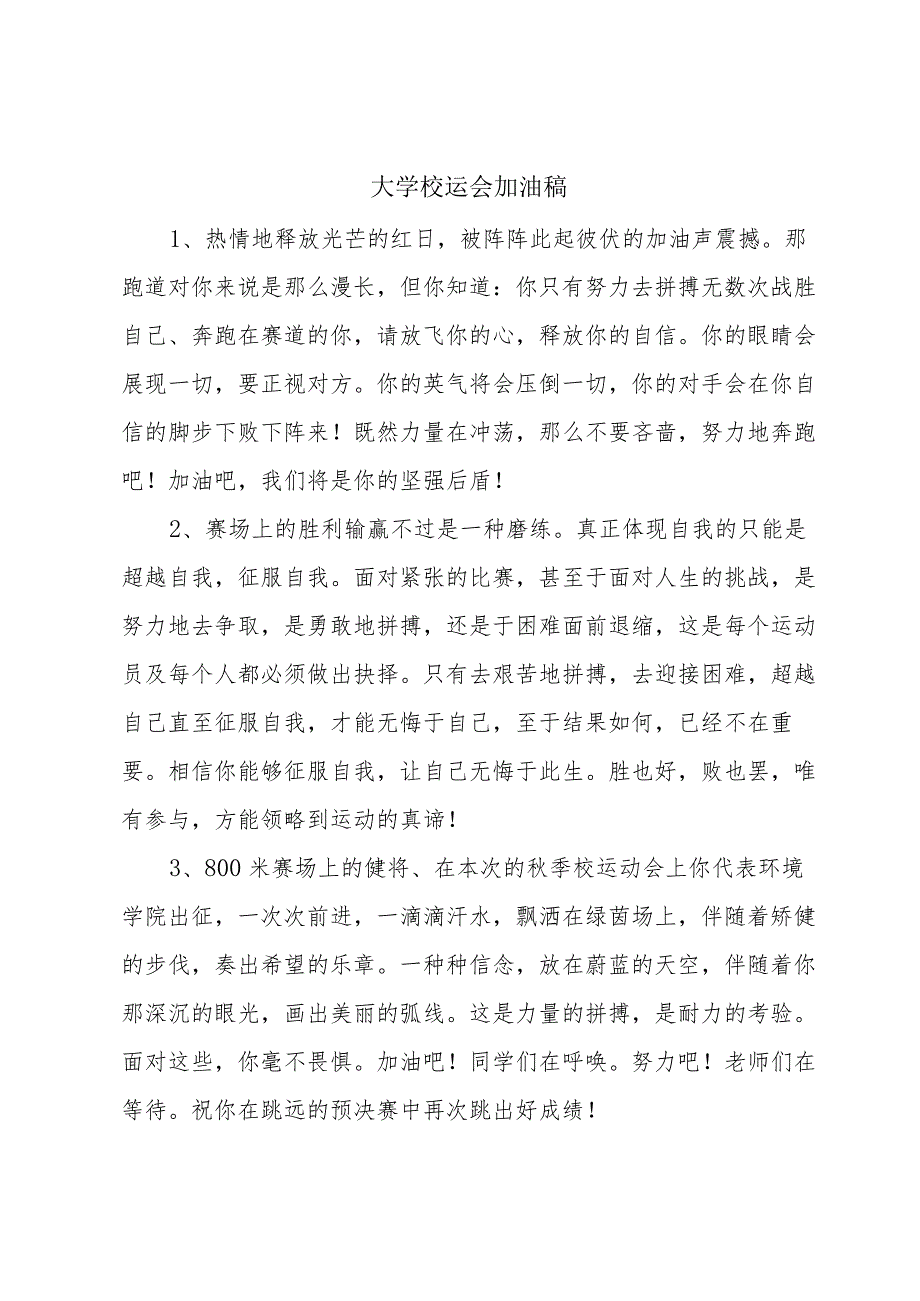 大学校运会加油稿
1、热情地释放光芒的红日，被阵阵此起彼伏的加油声震撼。那
跑道对你来说是那么漫长，但你知道：你只有努力去拼搏无数次战胜
自己、奔跑在赛道的你，请放飞你的心，释放你的自信。你的眼睛会
展现一切，要正视对方。你的英气将会压倒一切，你的对手会在你自
信的脚步下败下阵来！既然力量在冲荡，那么不要吝啬，努力地奔跑
吧！加油吧，我们将是你的坚强后盾！
2、赛场上的胜利输赢不过是一种磨练。真正体现自我的只能是
超越自我，征服自我。面对紧张的比赛，甚至于面对人生的挑战，是
努力地去争取，是勇敢地拼搏，还是于困难面前退缩，这是每个运动
员及每个人都必须做出抉择。只有去艰苦地拼搏，去迎接困难，超越
自己直至征服自我，才能无悔于自己，至于结果如何，已经不在重
要。相信你能够征服自我，让自己无悔于此生。胜也好，败也罢，唯
有参与，方能领略到运动的真谛！
3、800 米赛场上的健将、在本次的秋季校运动会上你代表环境
学院出征，一次次前进，一滴滴汗水，飘洒在绿茵场上，伴随着矫健
的步伐，奏出希望的乐章。一种种信念，放在蔚蓝的天空，伴随着你
那深沉的眼光，画出美丽的弧线。这是力量的拼搏，是耐力的考验。
面对这些，你毫不畏惧。加油吧！同学们在呼唤。努力吧！老师们在
等待。祝你在跳远的预决赛中再次跳出好成绩！